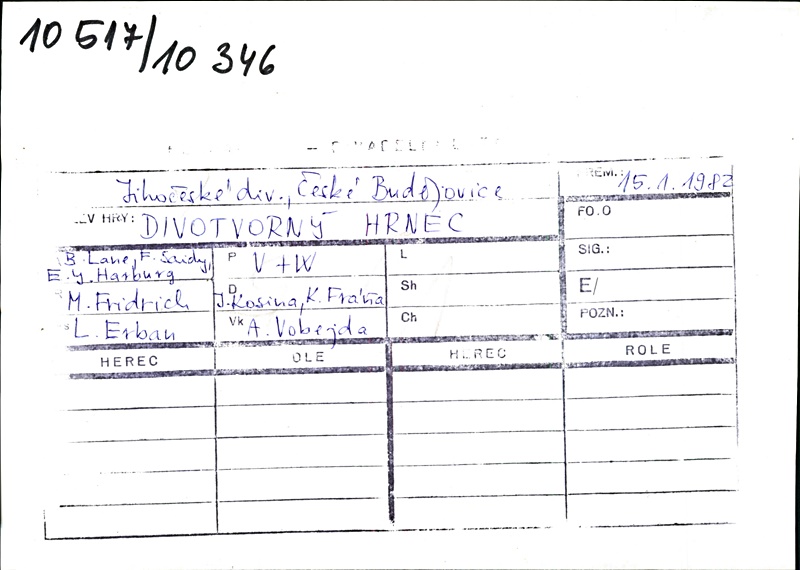 10 517/10 346
Jihočeské div., České Budějovice
PREM.: 15.1.1982
EV HRY: DIVOTVORNÝ HRNEC
FO.O
B. Lane, F. Saidy,
E. Y. Harburg
P V+W
L
SIG.:
M. Fridrich
D J. Kosina, K. Fráňa
Sh
E/
L. Erban
Vk A. Vobejda
Ch
POZN.:
HEREC OLE HEREC ROLE